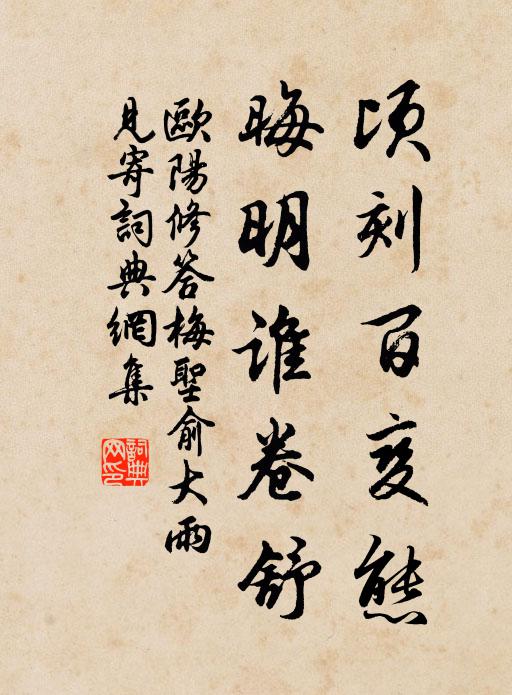 頃刻百变態
晦明誰卷舒
歐陽修答梅聖俞大雨
見寄詞典網集
詞典
网印